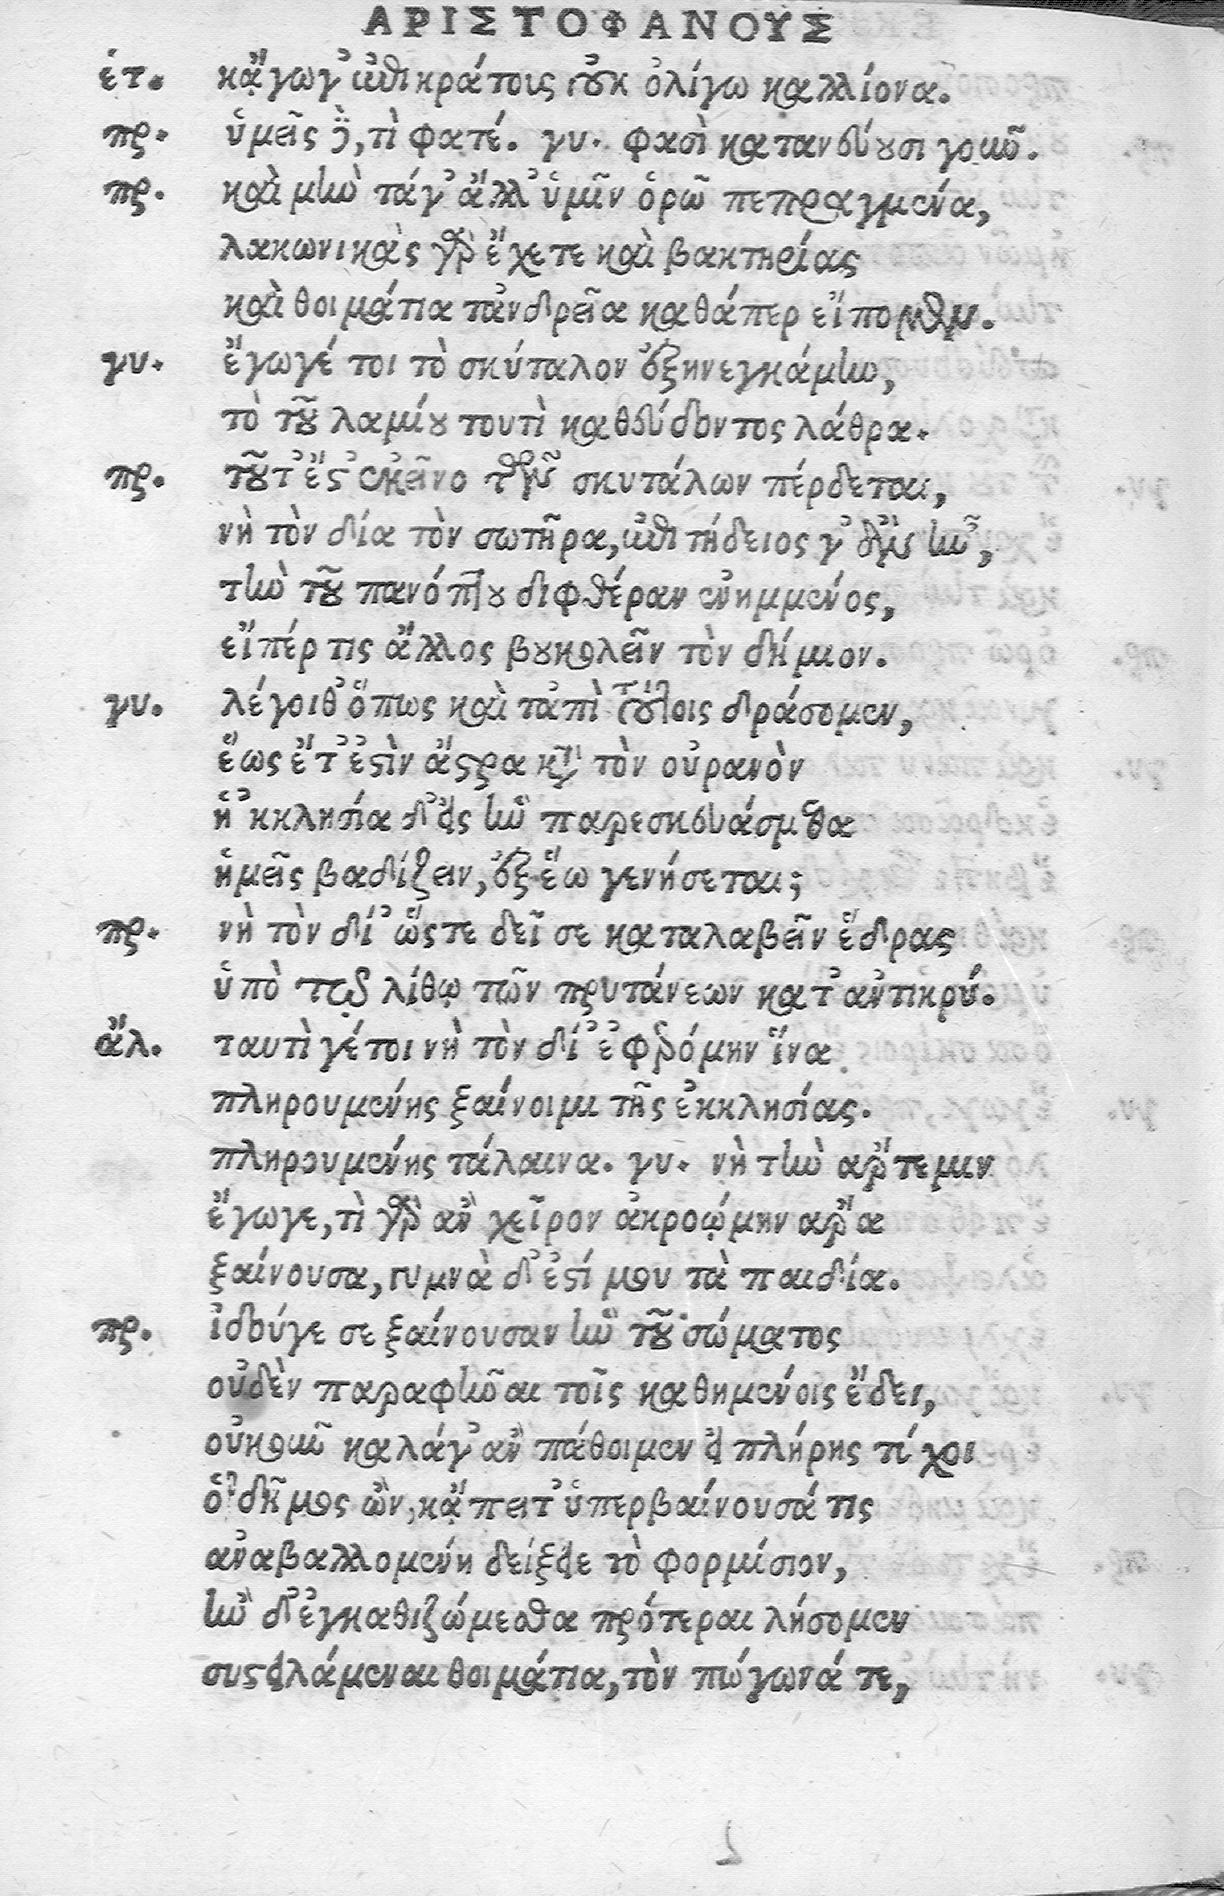 ΑΡΙΣΤΟΦΑΝΟΥΣ
ἑτ. κᾄγωγ' ἐπικράτους οὐκ ὀλίγω καλλίονα.
πρ. ὑμεῖς δὲ, τὶ φατέ. γυ. φασὶ κατανεύουσι γοῦν.
πρ. καὶ μὴν τάγ' ἄλλ' ὑμῖν ὁρῶ πεπραγμένα,
λακωνικὰς γὰρ ἔχετε καὶ βακτηρίας
καὶ θοιμάτια τἀνδρεῖα καθάπερ εἴπομεν.
γυ. ἔγωγέ τοι τὸ σκύταλον ἐξηνεγκάμην,
τὸ τοῦ λαμίου τουτὶ καθεύδοντος λάθρα.
πρ. τοῦτ' ἔστ' ἐκεῖνο τῶν σκυτάλων πέρδεται,
νὴ τὸν δία τὸν σωτῆρα, ἐπιτήδειος γ' ἂν ἦν,
τὴν τοῦ πανόπτου διφθέραν ἐνημμένος,
εἴπέρ τις ἄλλος βουκολεῖν τὸν δήμιον.
γυ. λέγοιθ' ὅπως καὶ τἀπὶ τούτοις δράσομεν,
ἕως ἔτ' ἐστὶν ἄστρα κατὰ τὸν οὐρανὸν
ἡ 'κκλησία δ' εἰς ἣν παρεσκευάσμεθα
ἡμεῖς βαδίζειν, ἐξ ἕω γενήσεται;
πρ. νὴ τὸν δί' ὥστε δεῖ σε καταλαβεῖν ἕδρας
ὑπὸ τῷ λίθῳ τῶν πρυτάνεων κατ' αὐτικρύ.
ἄλ. ταυτὶ γέτοι νὴ τὸν δί' ἐφερόμην ἵνα
πληρουμένης ξαίνοιμι τῆς ἐκκλησίας.
πληρουμένης τάλαινα. γυ. νὴ τὴν ἄρτεμιν
ἔγωγε, τὶ γὰρ ἂν χεῖρον ἀκροῴμην ἄρα
ξαίνουσα, γυμνὰ δ' ἐστί μου τὰ παιδία.
πρ. ἰδούγε σε ξαίνουσαν ἣν τοῦ σώματος
οὐδὲν παραφῆναι τοῖς καθημένοις ἔδει,
οὐκοῦν καλάγ' ἂν πάθοιμεν εἰ πλήρης τύχοι
ὁ δῆμος ὢν, κᾄπειτ' ὑπερβαίνουσά τις
ἀναβαλλομένη δείξειε τὸ φορμίσιον,
ἢν δ' ἐγκαθιζώμεσθα πρότεραι λήσομεν
συστειλάμεναι θοιμάτια, τὸν πώγωνά τε,